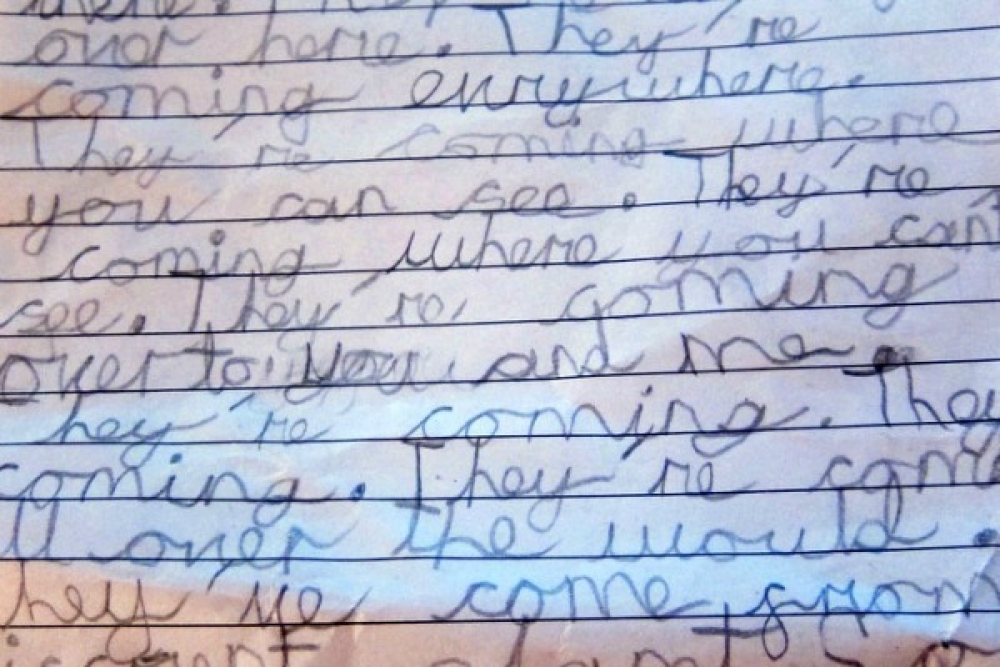 over here. They're
coming enrywhere.
They're coming where
you can see. They're
coming where you can't
see. They're coming
over to you and me.
They're coming. They
coming. They're com
ll over the would.
hey've come from